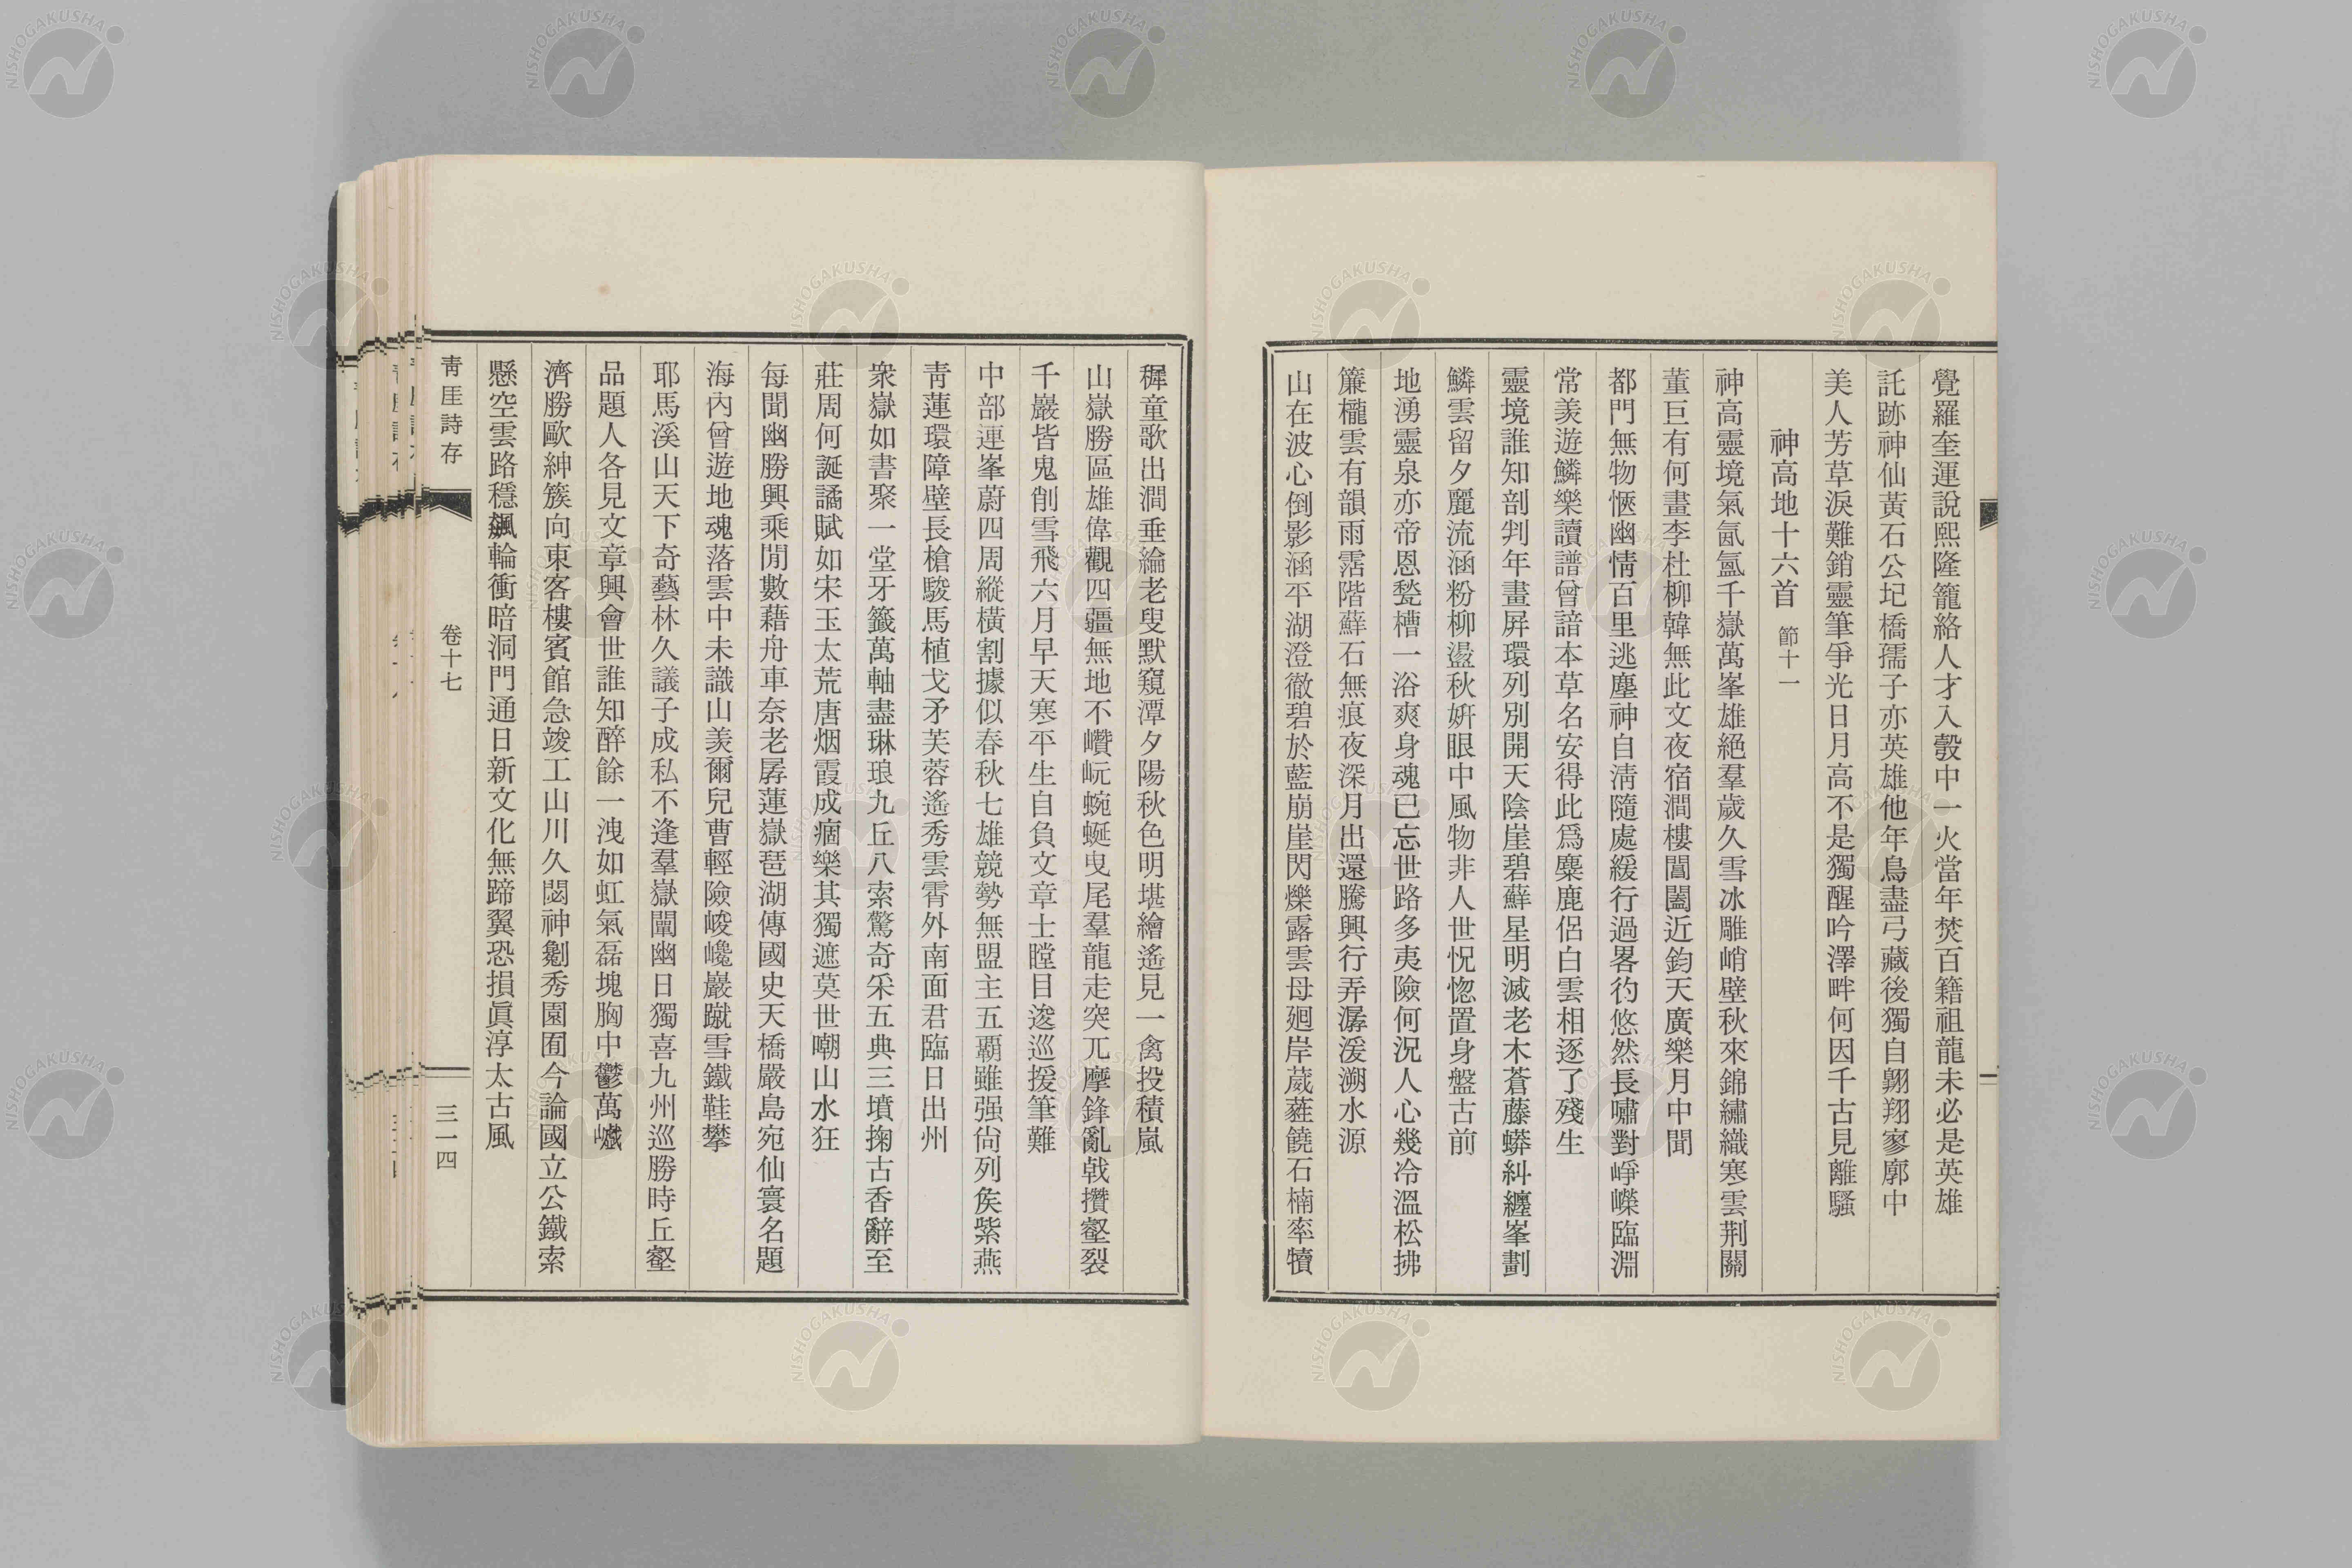 覺羅奎運說熙隆籠絡人才入彀中一火當年焚百籍祖龍未必是英雄
託跡神仙黃石公圯橋孺子亦英雄他年鳥盡弓藏後獨自翺翔寥廓中
美人芳草淚難銷靈筆爭光日月高不是獨醒吟澤畔何因千古見離騷
神高地十六首 節十一
神高靈境氣氤氳千嶽萬峯雄絕羣歲久雪冰雕峭壁秋來錦繡織寒雲荆關
董巨有何畫李杜柳韓無此文夜宿澗樓閶闔近鈞天廣樂月中聞
都門無物愜幽情百里逃塵神自清隨處緩行過畧彴悠然長嘯對崢嶸臨淵
常羨遊鱗樂讀譜曾諳本草名安得此爲麋鹿侶白雲相逐了殘生
靈境誰知剖判年畫屏環列別開天陰崖碧蘚星明滅老木蒼藤蟒糾纏峯劃
鱗雲留夕麗流涵粉柳盪秋姸眼中風物非人世怳惚置身盤古前
地湧靈泉亦帝恩甃槽一浴爽身魂已忘世路多夷險何況人心幾冷溫松拂
簾櫳雲有韻雨霑階蘚石無痕夜深月出還騰興行弄潺湲溯水源
山在波心倒影涵平湖澄徹碧於藍崩崖閃爍露雲母廻岸葳蕤饒石楠牽犢
穉童歌出澗垂綸老叟默窺潭夕陽秋色明堪繪遙見一禽投積嵐
山嶽勝區雄偉觀四疆無地不巑岏蜿蜒曳尾羣龍走突兀摩鋒亂戟攢壑裂
千巖皆鬼削雪飛六月早天寒平生自負文章士瞠目逡巡援筆難
中部連峯蔚四周縱橫割據似春秋七雄競勢無盟主五覇雖强尙列矦紫燕
靑蓮環障壁長槍駿馬植戈矛芙蓉遙秀雲霄外南面君臨日出州
衆嶽如書聚一堂牙籤萬軸盡琳琅九丘八索驚奇采五典三墳掬古香辭至
莊周何誕譎賦如宋玉太荒唐烟霞成痼樂其獨遮莫世嘲山水狂
每聞幽勝興乘閒數藉舟車奈老孱蓮嶽琶湖傳國史天橋嚴島宛仙寰名題
海內曾遊地魂落雲中未識山羨爾兒曹輕險峻巉巖蹴雪鐵鞋攀
耶馬溪山天下奇藝林久議子成私不逢羣嶽闡幽日獨喜九州巡勝時丘壑
品題人各見文章興會世誰知醉餘一洩如虹氣磊塊胸中鬱萬巇
濟勝歐紳簇向東客樓賓館急竣工山川久閟神剜秀園囿今論國立公鐵索
懸空雲路穩飆輪衝暗洞門通日新文化無蹄翼恐損眞淳太古風
靑厓詩存
卷十七
三一四